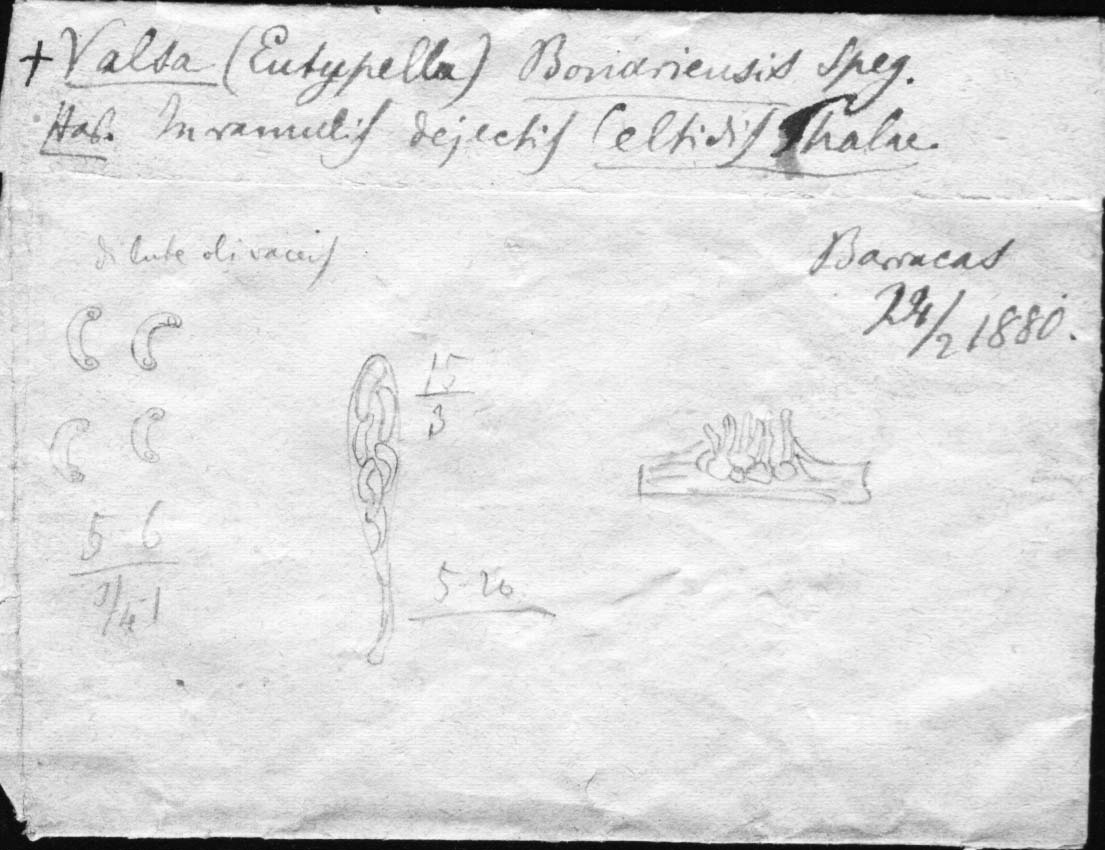 + Valsa (Eutypella) Bonäriensis Speg.
Hab. In ramulis dejectis Celtidis Thalae.
dilute olivaceis
Barracas
24/2 1880.
15
3
5 6
1
5-20